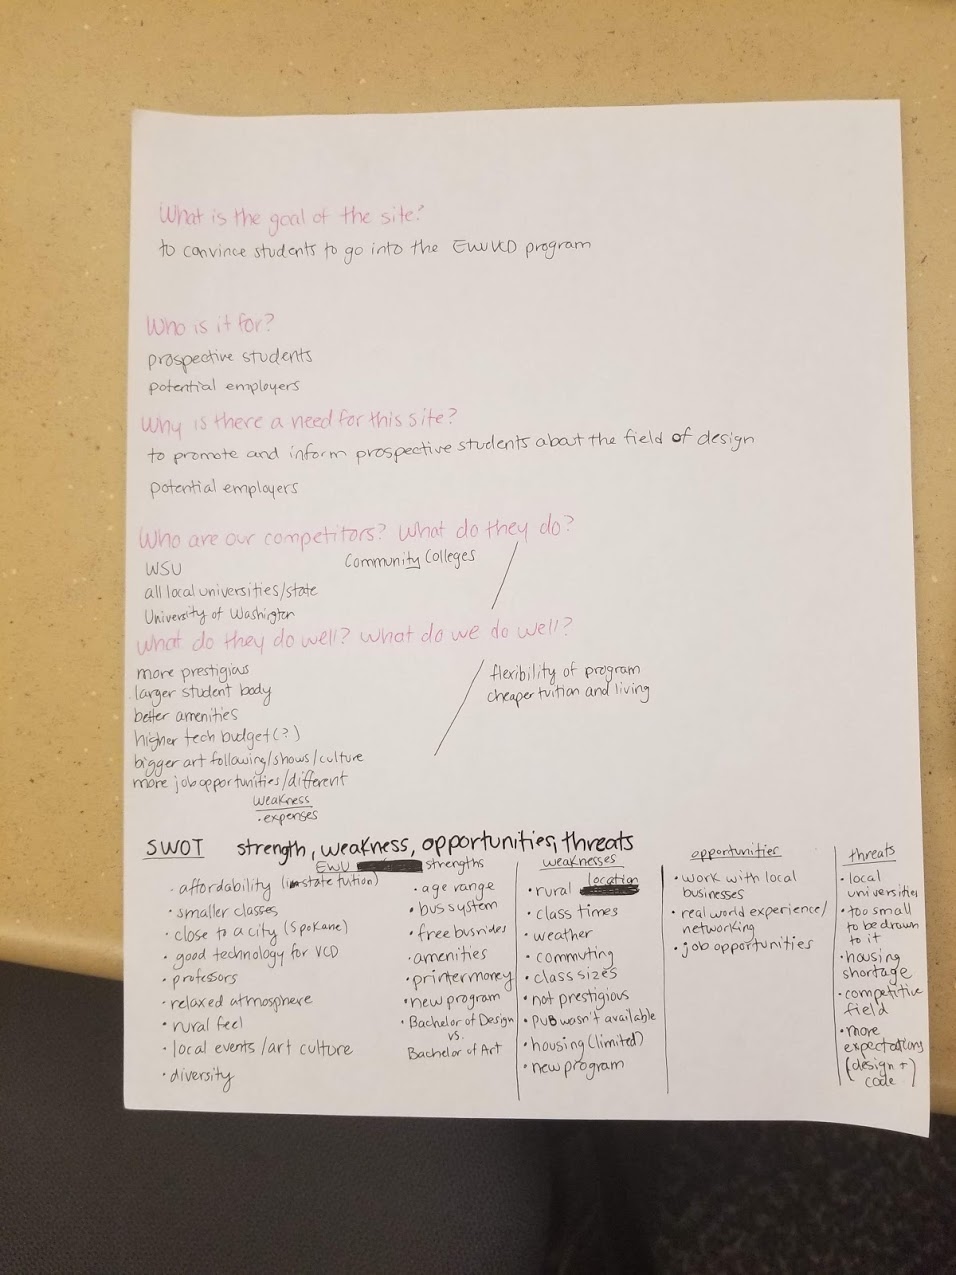 What is the goal of the site?
to convince students to go into the EWU VCD program
Who is it for?
prospective students
potential employers
Why is there a need for this site?
to promote and inform prospective students about the field of design
potential employers
Who are our competitors? What do they do?
WSU
Community Colleges
all local universities/state
University of Washington
What do they do well? What do we do well?
more prestigious
larger student body
better amenities
higher tech budget(?)
bigger art following/shows/culture
more job opportunities/different
weakness
• expenses
flexibility of program
cheaper tuition and living
SWOT strength, weakness, opportunities, threats
EWU strengths
• affordability (in state tution)
• smaller classes
• close to a city (Spokane)
• good technology for VCD
• professors
• relaxed atmosphere
• rural feel
• local events/art culture
• diversity
• age range
• bus system
• free bus rides
• amenities
• printer money
• new program
• Bachelor of Design
vs.
Bachelor of Art
weaknesses
• rural location
• class times
• weather
• commuting
• class sizes
• not prestigious
• PUB wasn't available
• housing (limited)
• new program
opportunities
• work with local
businesses
• real world experience/
networking
• job opportunities
threats
• local
universities
• too small
to be drawn
to it
• housing
shortage
• competitive
field
• more
expectations
(design +
code)